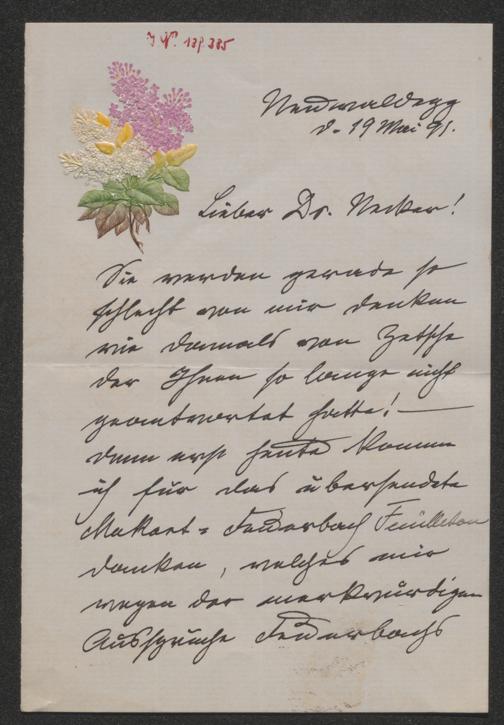 I.N. 139.385
Neuwaldegg
d. 19 Mai 91.
Lieber Dr. Necker!
Sie werden gerade so
schlecht von mir denken
wie damals von Zetsche
der Ihnen so lange nicht
geantwortet hatte! —
denn erst heute komme
ich für das übersendete
Makart = Feuerbach Feuilleton
danken, welches mir
wegen der merkwürdigen
Aussprüche Feuerbachs